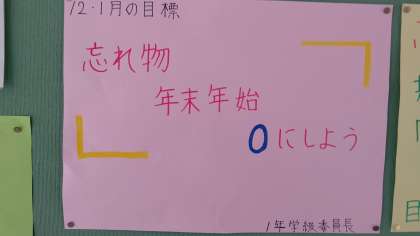 12・1月の目標
忘れ物
年末年始
0にしよう
1年学級委員長